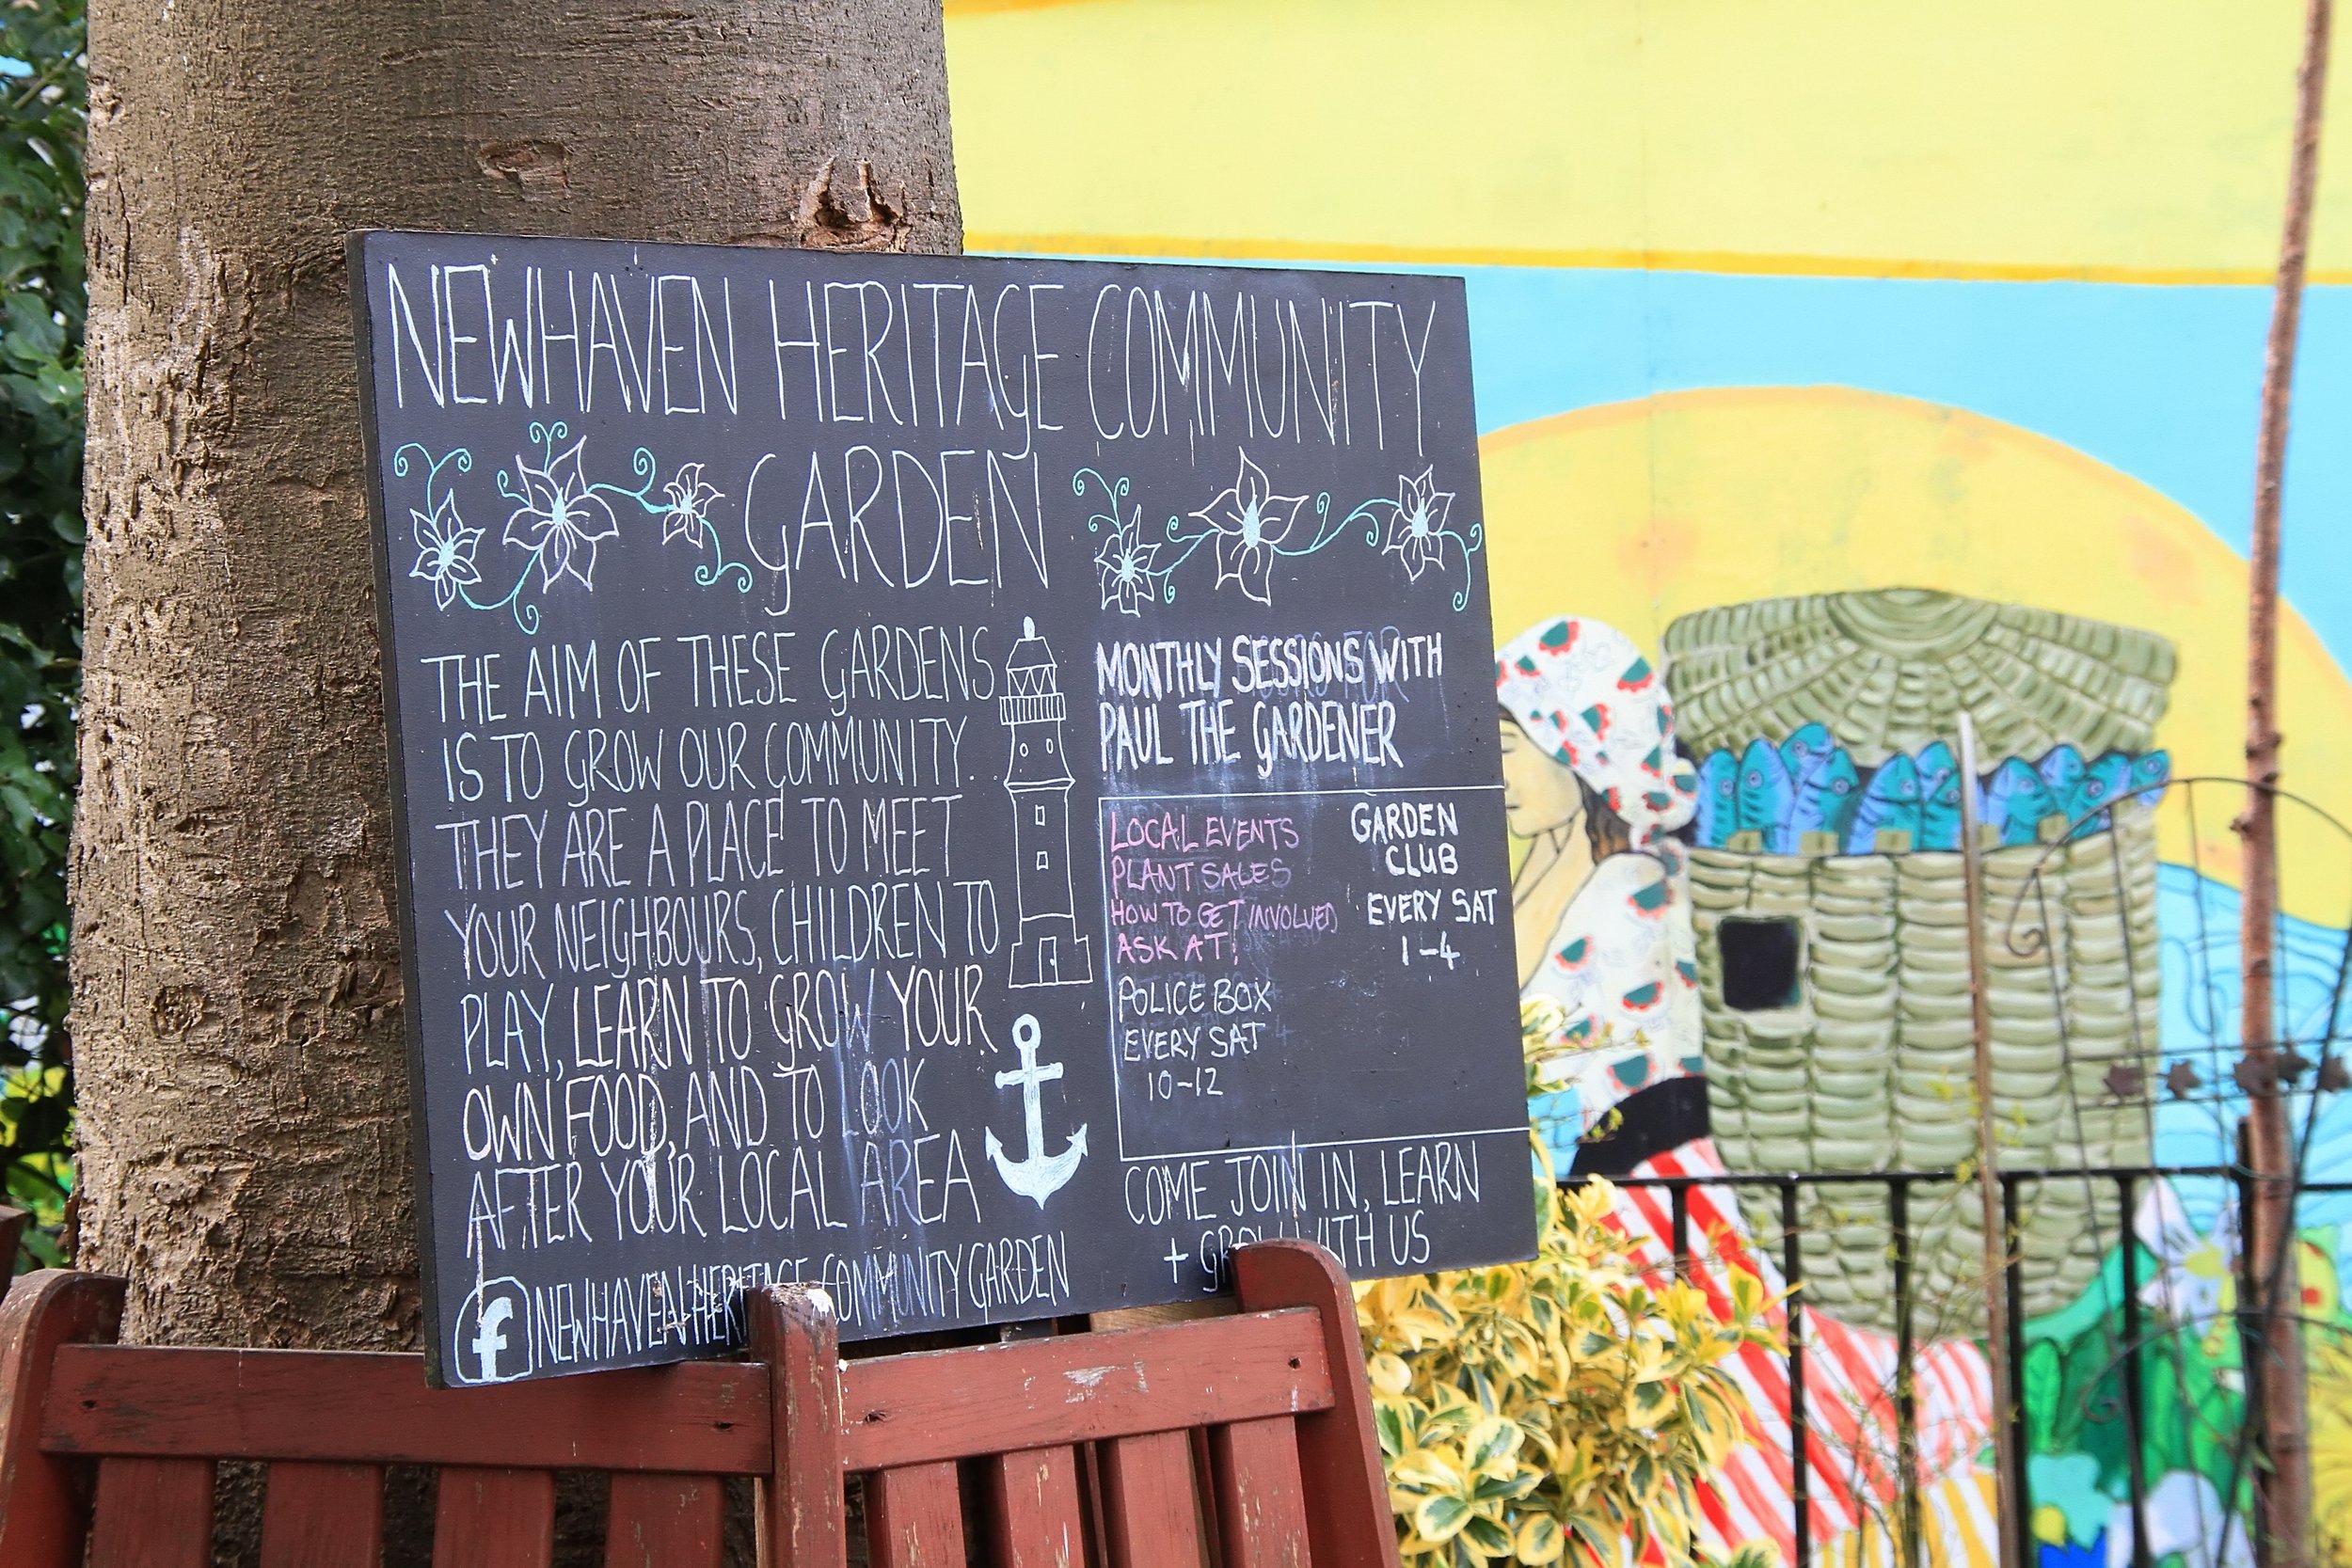 NEWHAVEN HERITAGE COMMUNITY
GARDEN
THE AIM OF THESE GARDENS
IS TO GROW OUR COMMUNITY.
THEY ARE A PLACE TO MEET
YOUR NEIGHBOURS, CHILDREN TO
PLAY, LEARN TO GROW YOUR
OWN FOOD, AND TO LOOK
AFTER YOUR LOCAL AREA
f NEWHAVEN HERITAGE COMMUNITY GARDEN
MONTHLY SESSIONS WITH
PAUL THE GARDENER
LOCAL EVENTS
PLANT SALES
HOW TO GET INVOLVED
ASK AT!
POLICE BOX
EVERY SAT
10-12
GARDEN
CLUB
EVERY SAT
1-4
COME JOIN IN, LEARN
+ GROW WITH US